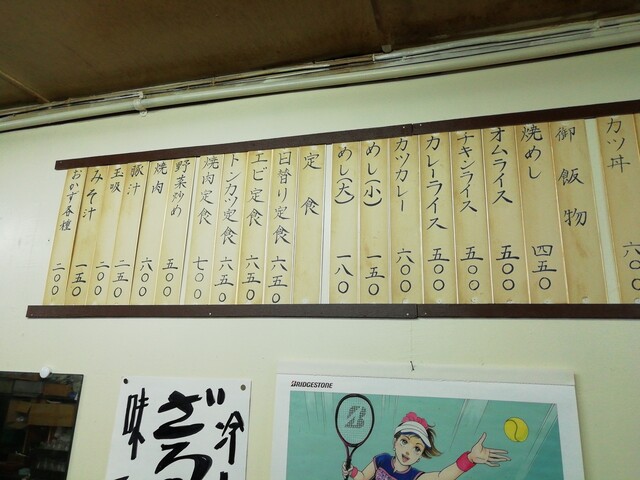 カツ丼 六〇
御飯物
焼めし 四五〇
オムライス 五〇〇
チキンライス 五〇〇
カレーライス 五〇〇
カツカレー 六〇〇
めし(小) 一五〇
めし(大) 一八〇
定食
日替り定食 六五〇
エビ定食 六五〇
トンカツ定食 六五〇
焼肉定食 七〇〇
野菜炒め 五〇〇
焼肉 六〇〇
豚汁 二五〇
玉吸 二〇〇
みそ汁 一五〇
おかず各種 二〇〇
冷
ざる
味
BRIDGESTONE
B